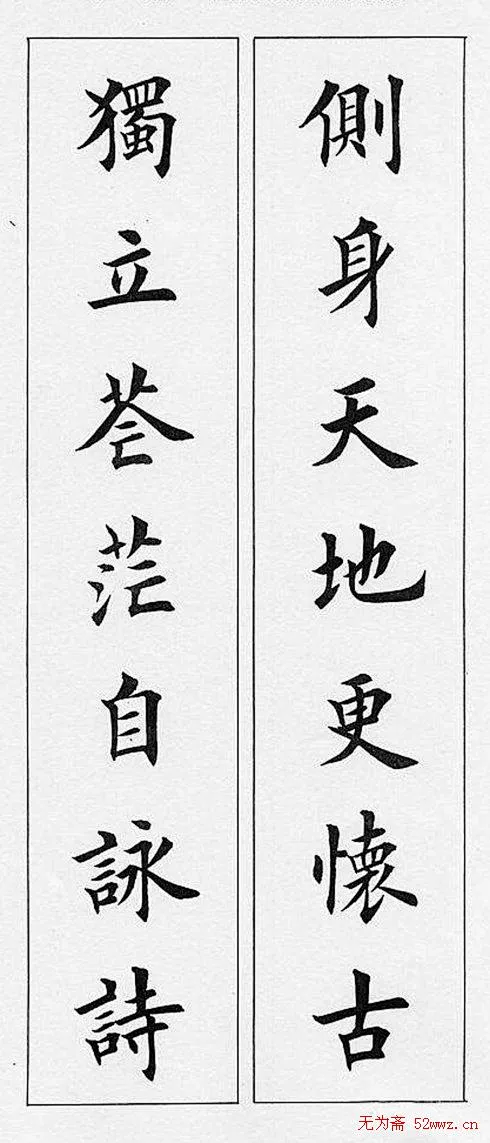 側身天地更懷古
獨立蒼茫自詠詩
无为斋 52wwz.cn